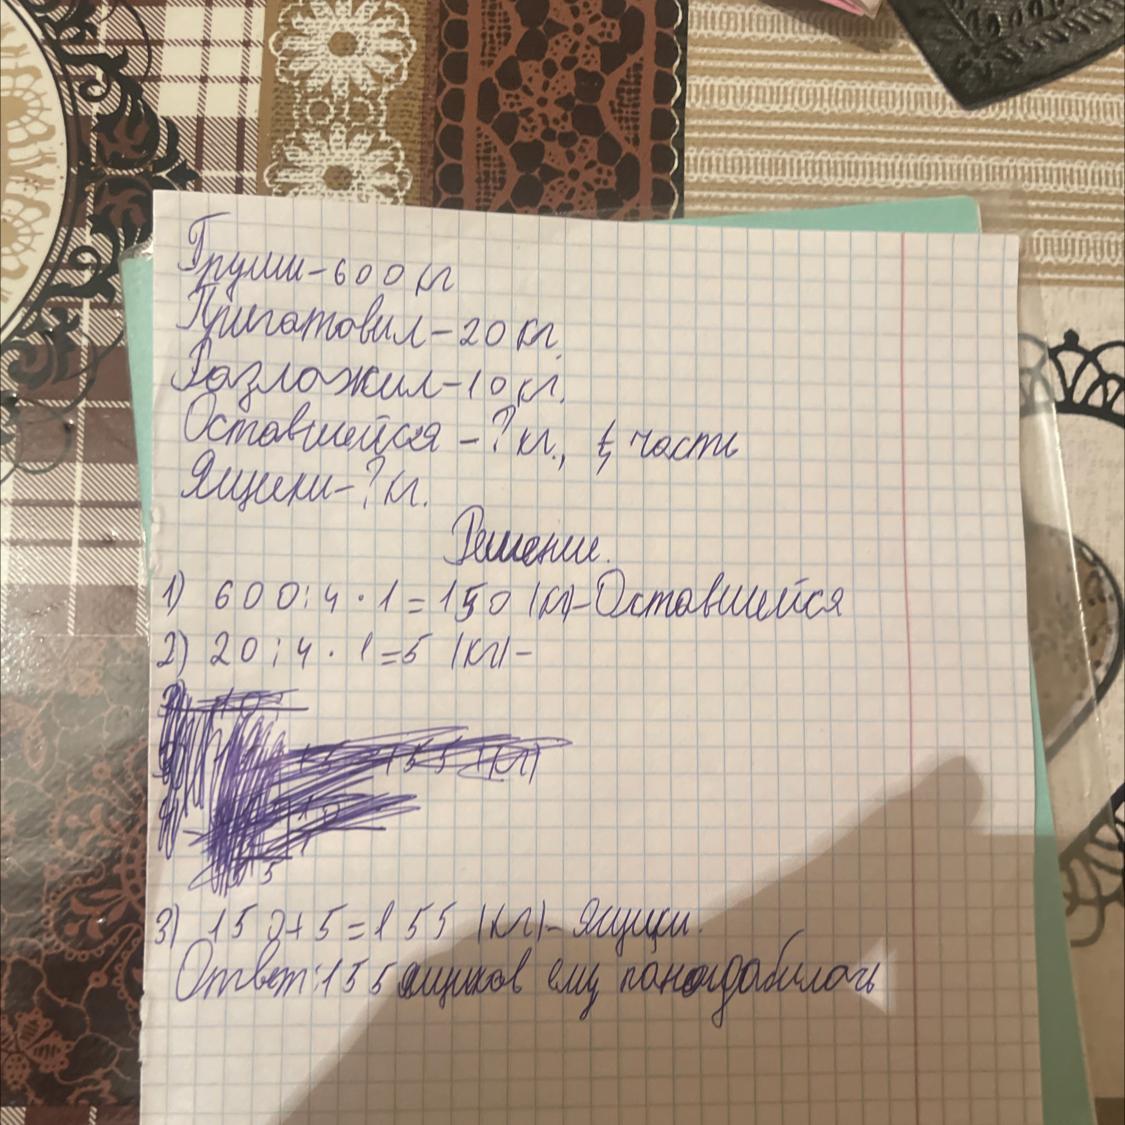 Груши - 600 кг
Пригатовил - 20 кг.
Разложил - 10 кг.
Оставшейся - ? кг., часть
Ящики - ? кг.
Решение.
1) 600 : 4 · 1 = 150 (кг) - Оставшейся
2) 20 : 4 · 1 = 5 (кг) -
3) 150 + 5 = 155 (кг) - Ящики.
Ответ: 155 ящиков ему панадабилось